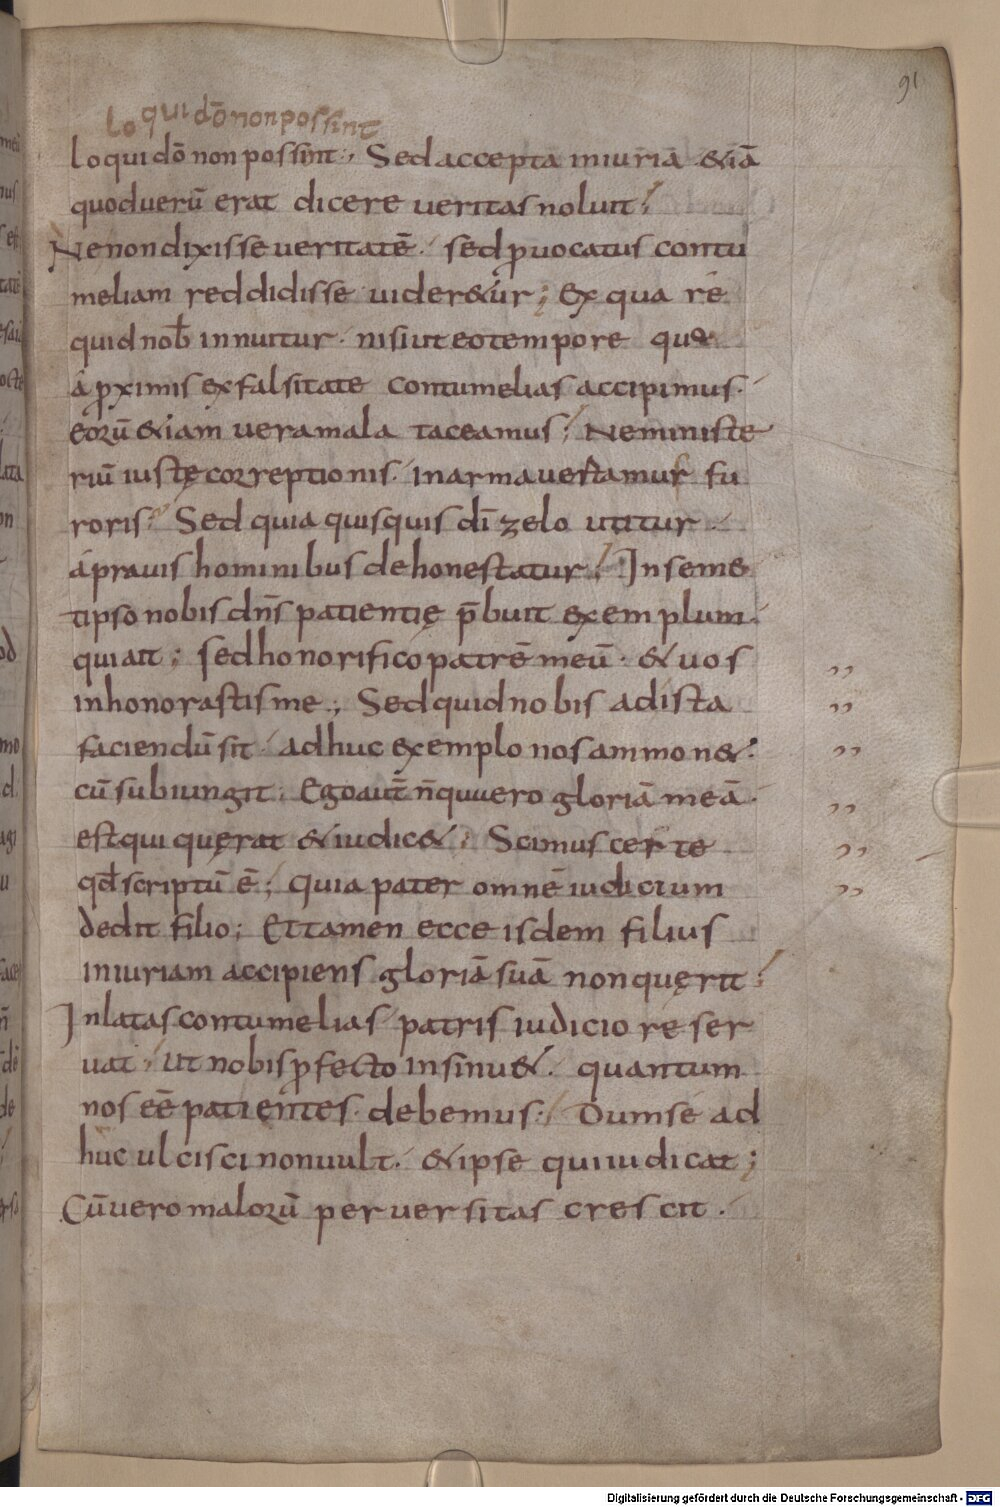 91
loqui dō non possint
loqui dō non possint; Sed accepta iniuria &iā
quod uerū erat dicere ueritas noluit.
Ne non dixisse ueritatē. sed ꝓuocatus contu
meliam reddidisse uider&ur; Ex qua re
quid nob̄ innuitur. nisi ut eo tempore quo
a ꝓximis ex falsitate contumelias accipimus.
eorū &iam uera mala taceamus; Ne ministe
riū iustę correptionis. in arma uertamus fu
roris. Sed quia quisquis dī zelo utitur.
a prauis hominibus dehonestatur; In sem&
tipso nobis dn̄s patientię p̄buit exemplum.
qui ait; sed honorifico patrē meū. & uos
inhonorastis me; Sed quid nobis ad ista
faciendū sit. adhuc exemplo nos ammon&.
cū subiungit. Ego aut̄ n̄ quero gloriā meā.
est qui quęrat & iudic&; Scimus certe
qd̄ scriptū ē; quia pater omnē iudicium
dedit filio; Et tamen ecce isdem filius
iniuriam accipiens gloriā suā non quęrit;
Inlatas contumelias patris iudicio reser
uat. ut nobis ꝓfecto insinu&. quantum
nos eē patientes debemus; Dum se ad
huc ulcisci non uult. & ipse qui iudicat;
Cū uero malorū peruersitas crescit.
Digitalisierung gefördert durch die Deutsche Forschungsgemeinschaft - DFG